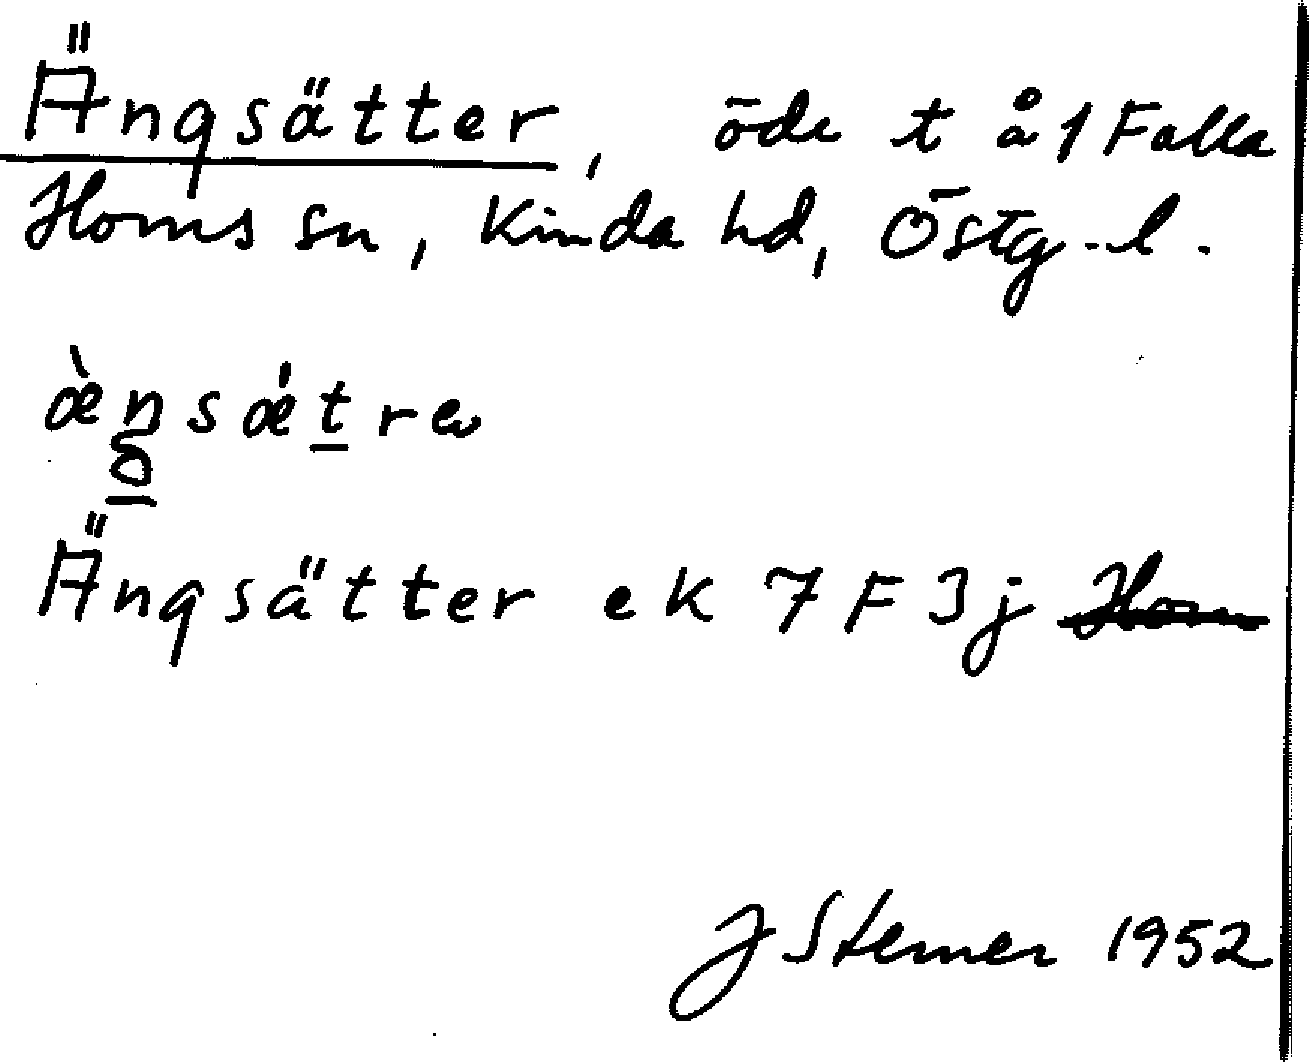 Ängsätter, öde t å 1 Falla
Horns sn, Kinda hd, Östg.l.
Ängsätter ek 7 F 3j Horn
J Sterner 1952